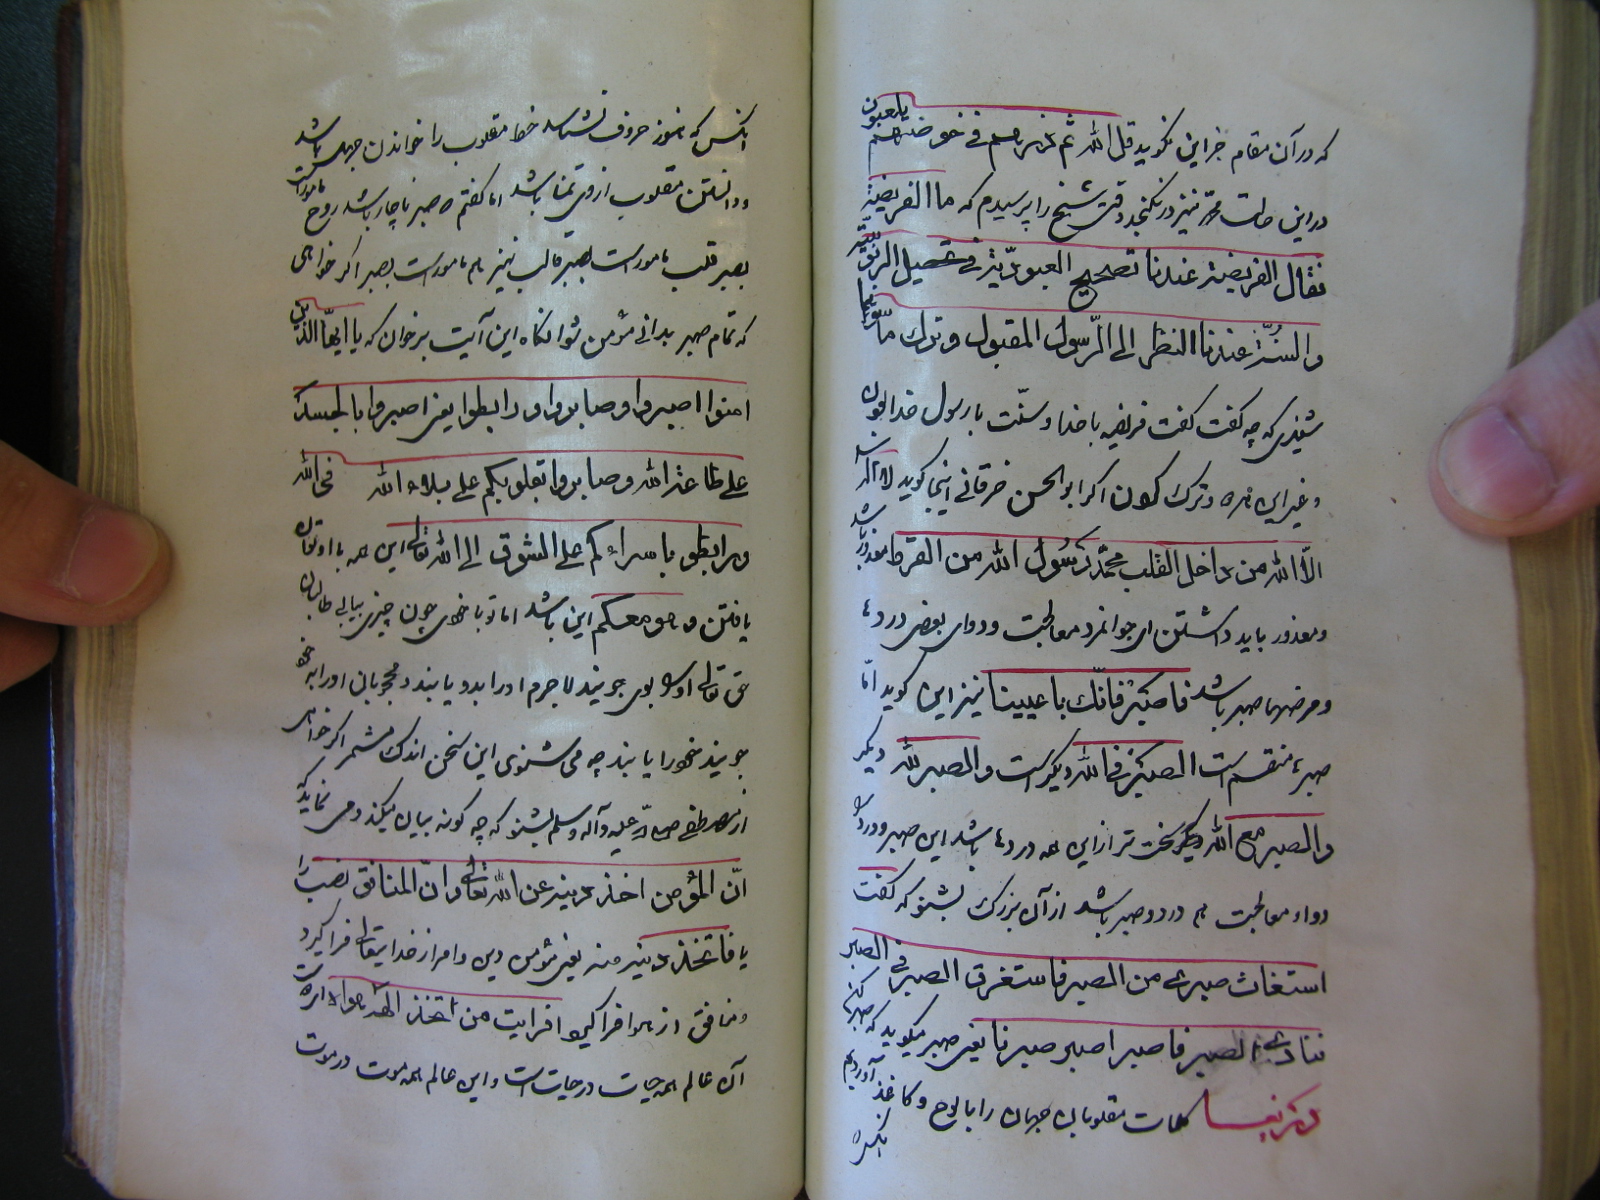 که در آن مقام جز این نگوید قل الله ثم ذرهم فی خوضهم یلعبون
در این حالت محمد نیز درنگنجد وقتی شیخ را پرسیدم که ما الفریضة
فقال الفریضة عندنا تصحیح العبودیة فی تحصیل الربوبیة
والسنة عندنا النظر الی الرسول المقبول وترک ما سویهما
شنیدی که چه گفت گفت فریضه با خدا و سنت با رسول خدا بودن
و غیر این همه ترک کون اگر ابوالحسن خرقانی اینجا گوید لا اله
الا الله من داخل القلب محمد رسول الله من القرط معذور باشد
ومعذور باید داشتن ای جوانمرد معالجت ودوای بعضی دردها
ومرضها صبر باشد فاصبر فانک باعییننا نیز این گوید اما
صبرها منقسم است الصبر فی الله دیگر است والصبر لله دیگر
والصبر مع الله دیگر سخت تر از این همه دردها باشد این صبر ودرد را
دوا ومعالجت هم درد وصبر باشد از آن بزرگ بشنو که گفت
استغاث صبری من الصبر فاستغرق الصبر فی الصبر
فنادی الصبر فاصبر اصبر صبرنا یعنی صبر میگوید که صبر کنیم
کلمات مقلوبان جهان را با لوح وکاغذ آوردیم
آنکس که هنوز حروف نشناسد خط مقلوب را خواندن جهل باشد
ودانستن مقلوب از وی تمنا باشد اما گفتم که صبر ناچار باشد روح مامورست
بصبر قلب مامور است بصبر قالب نیز هم مامور است بصبر اگر خواهی
که تمام صبر بدانی مؤمن شو آنگاه این آیت برخوان که یا ایها الذین
امنوا اصبروا وصابروا ورابطوا یعنی اصبروا بالجسد
علی طاعة الله وصابروا بقلوبکم علی بلاء الله فی الله
ورابطوا باسرارکم علی الشوق الی الله تعالی این همه با او توان
یافتن وهو معکم این باشد اما تو با خود چون چیزی بیابی طالبان
حق تعالی او را بوی جویند لاجرم او را بدو یابند ومحجوبان او را به خود
جویند خود را یابند چه می شنوی این سخن اندک مشمر اگر خواهی
از مصطفی صلی الله علیه وآله وسلم بشنو که چه گونه بیان میکند ومی نماید که
ان المؤمن اخذ دینه عن الله تعالی وان المنافق نصب رایا
فاتخذ دینه منه یعنی مؤمن دین وامر از خدایتعالی فرا گیرد
ومنافق از هوا فرا گیرد افرایت من اتخذ الهه هواه
آن عالم همه حیات در حیات است واین عالم همه موت در موت